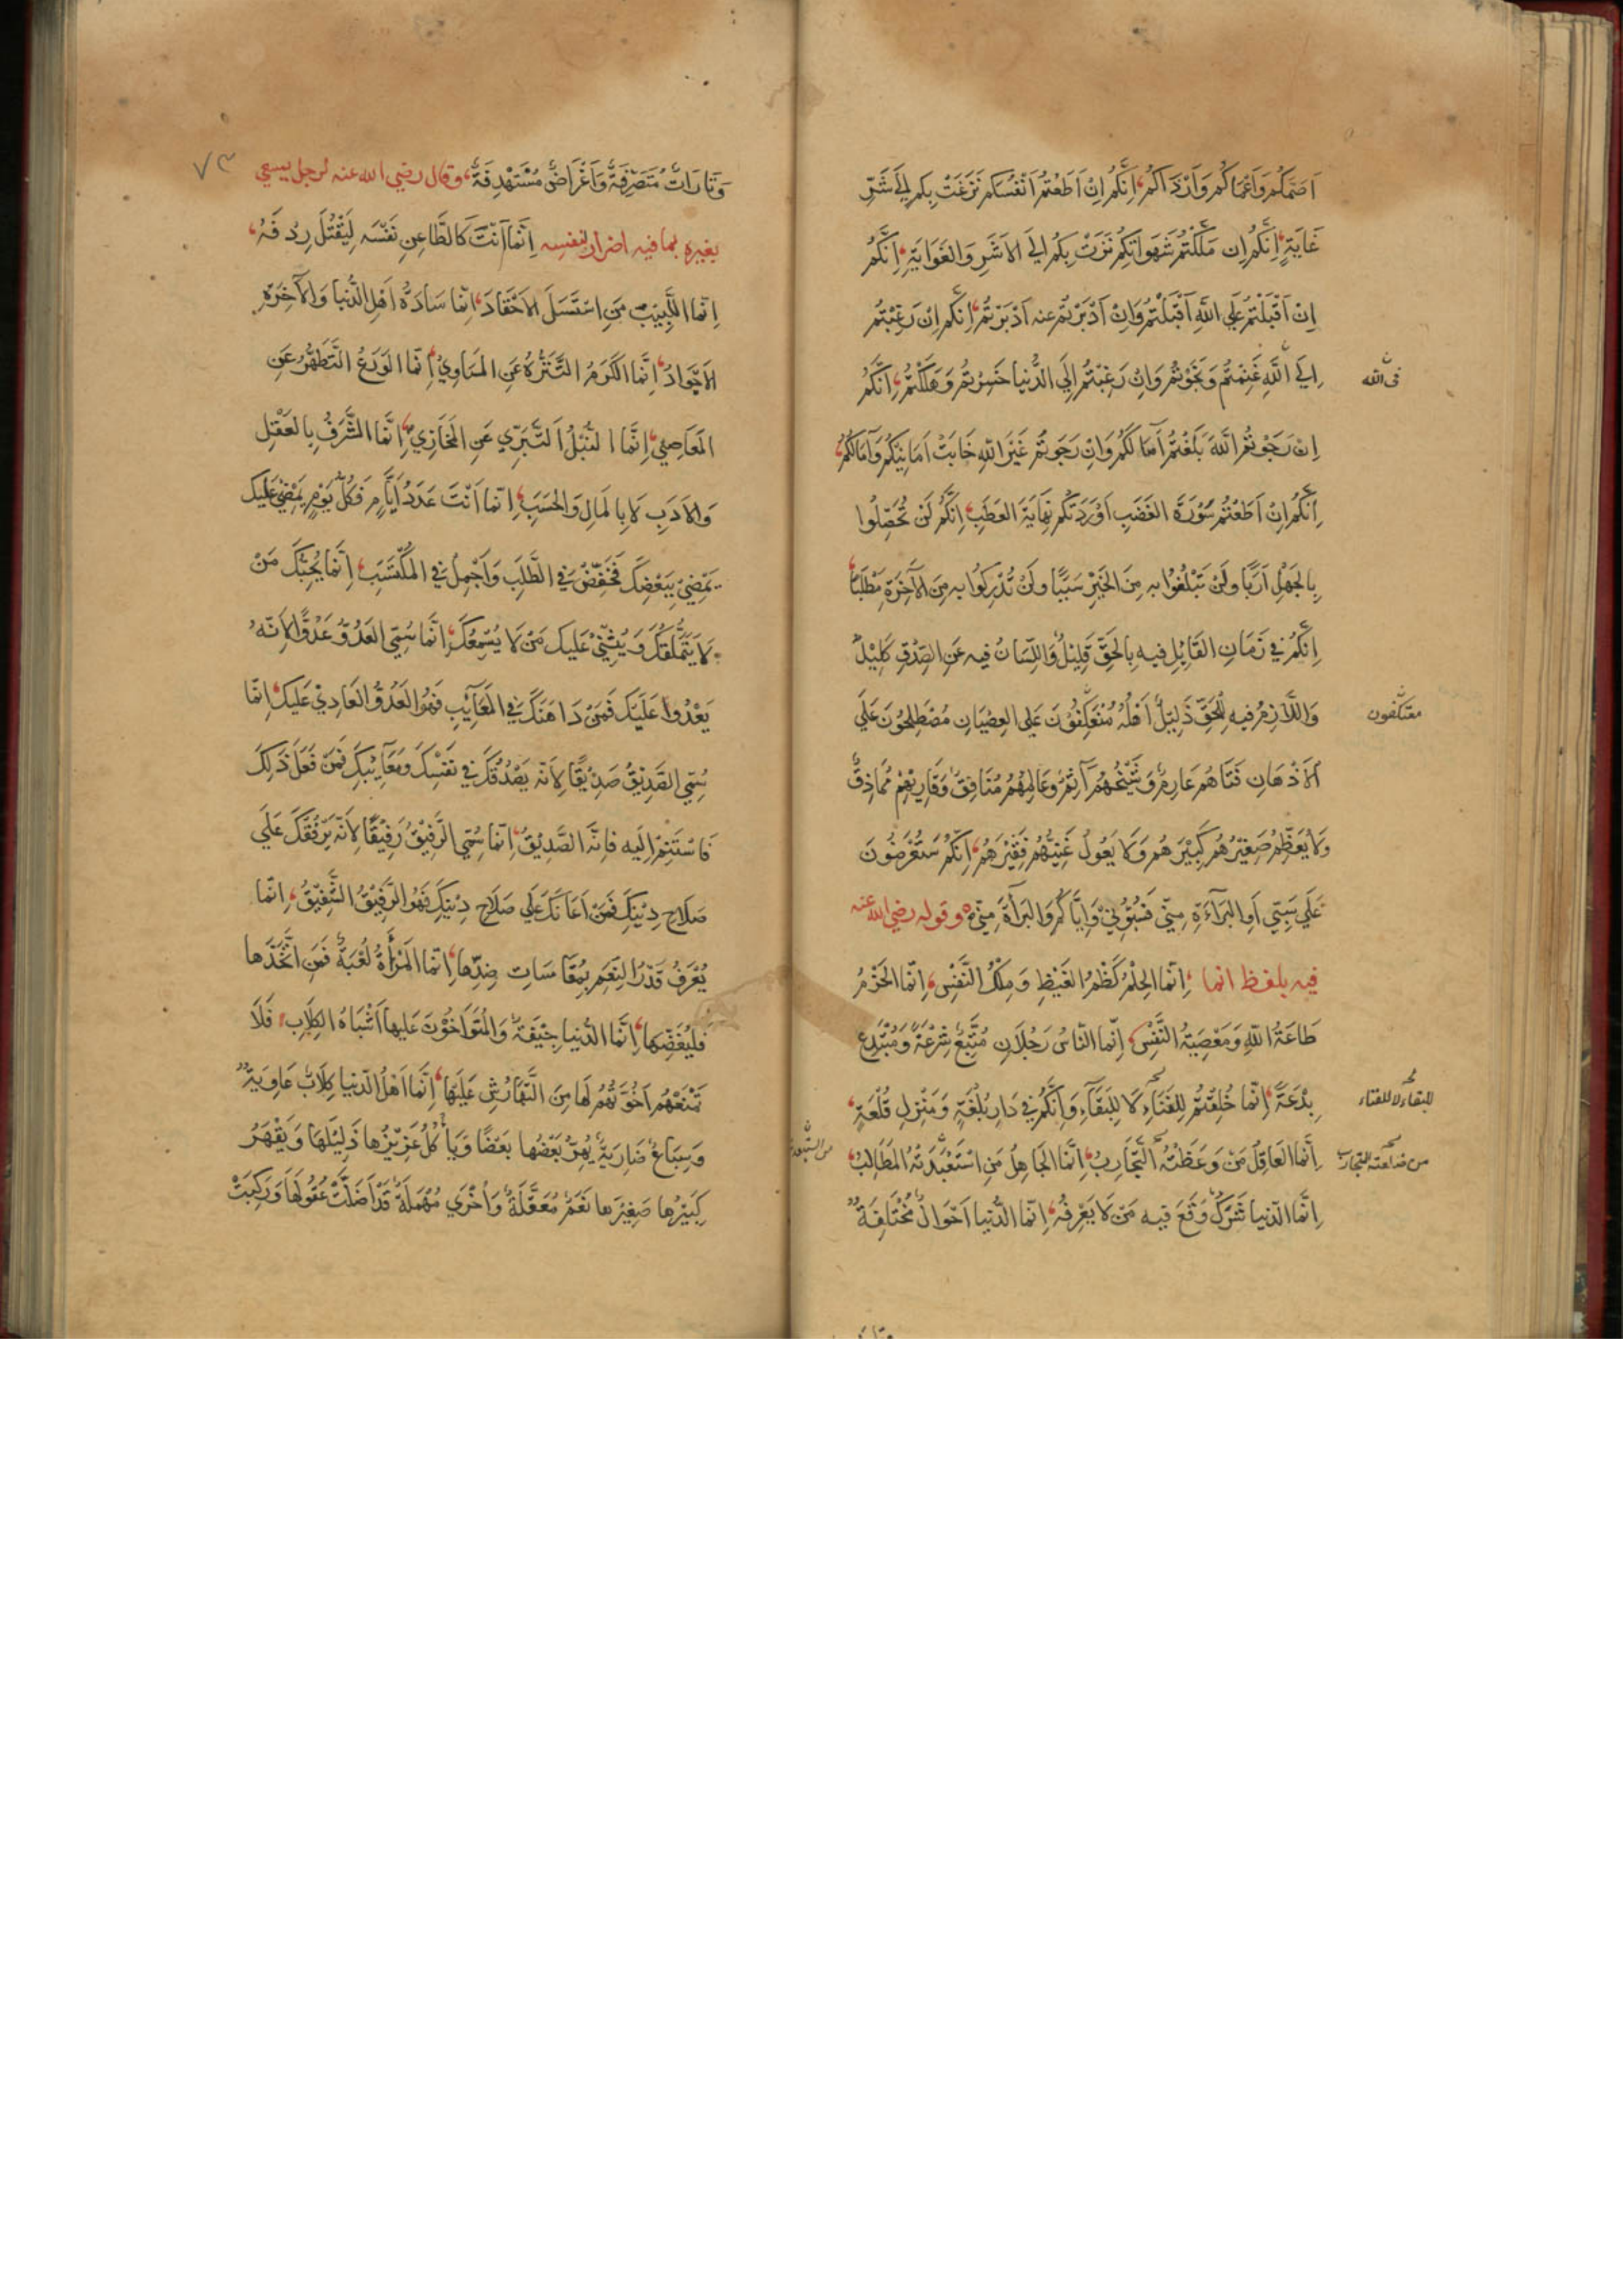 اَصَمَّكُم وَاَعْمَاكُم وَاَرْدَاكُم، اِنَّكُم اِنْ اَطَعْتُمْ اَنْفُسَكُم نَزَعَتْ بِكُم اِلَى شَرِّ
غَايَةٍ، اِنَّكُم اِن مَلَّكْتُمْ شَهَوَاتِكُم نَزَتْ بِكُم اِلَى الاَشَرِ وَالغَوَايَةِ، اِنَّكُم
اِنْ اَقْبَلْتُم عَلَى اللهِ اَقْبَلْتُم وَاِنْ اَدْبَرْتُم عنه اَدْبَرْتُم، اِنَّكُم اِنْ رَغِبْتُم
اِلَى اللهِ غَنِمْتُم وَنَجَوْتُم وَاِنْ رَغِبْتُم اِلَى الدُّنيا خَسِرْتُم وَهَلَكْتُم، اِنَّكُم
فى الله
اِنْ رَجَوْتُم اللهَ بَلَغْتُم آمَالَكُم وَاِنْ رَجَوتُم غَيْرَ اللهِ خَابَتْ اَمَانِيُّكُم وَآمَالُكُم،
اِنَّكُم اِنْ اَطَعْتُم سَوْرَةَ الغَضَبِ اَوْرَدَتْكُم نِهَايَةَ العَطَبِ، اِنَّكُم لَنْ تُحَصِّلُوا
بِالجَهْلِ اَرَبًا ولَنْ تَبْلُغُوا به مِنَ الخَيْرِ سَبَبًا ولَنْ تُدْرِكُوا به مِنَ الآخِرَةِ مَطْلَبًا،
اِنَّكُم فِي زَمَانٍ القَائِلُ فيه بِالحَقِّ قَلِيْلٌ وَاللِّسَانُ فيه عَنِ الصِّدْقِ كَلِيْلٌ
وَاللَّازِمُ فيهِ لِلْحَقِّ ذَلِيْلٌ اَهْلُهُ مُنْعَكِفُوْنَ عَلَى العِصْيَانِ مُصْطَلِحُوْنَ عَلَى
معتكفون
الاَدْهَانِ فَتَاهُم عَارِمٌ وَشَيْخُهُم آثِمٌ وَعَالِمُهُم مُنَافِقٌ وَقَارِيْهِمْ مُمَاذِقٌ
وَلَا يُعَظِّمُ صَغِيْرُهُم كَبِيْرَهُم وَلَا يَعُوْلُ غَنِيُّهُم فَقِيْرَهُم، اِنَّكُم سَتُعْرَضُوْنَ
عَلَى سَبِّي اَوِ البَرَآءَةِ مِنِّي فَسُبُّوْنِيْ وَاِيَّاكُم وَالبَرَآءَةَ مِنِّي، وقوله رضي الله عنه
فيه بلفظ انما، اِنَّمَا الحِلْمُ كَظْمُ الغَيْظِ وَمِلْكُ النَّفْسِ، اِنَّمَا الحَزْمُ
طَاعَةُ اللهِ وَمَعْصِيَةُ النَّفْسِ، اِنَّمَا النَّاسُ رَجُلَانِ مُتَّبِعُ شِرْعَةٍ وَمُبْتَدِعُ
بِدْعَةٍ، اِنَّمَا خُلِقْتُم لِلفَنَآءِ لَا لِلبَقَآءِ وَاِنَّكُم فِي دَارِ بُلْغَةٍ وَمَنْزِلِ قُلْعَةٍ،
للبقاء لا للفناء
اِنَّمَا العَاقِلُ مَنْ وَعَظَتْهُ التَّجَارِبُ، اِنَّمَا الجَاهِلُ مَنِ اسْتَعْبَدَتْهُ المَطَالِبُ،
اِنَّمَا الدُّنيا شَرَكٌ وَقَعَ فيه مَنْ لَا يَعْرِفُهُ، اِنَّمَا الدُّنيا اَحْوَالٌ مُخْتَلِفَةٌ
٧٣
وَتَارَاتٌ مُتَصَرِّفَةٌ وَاَغْرَاضٌ مُسْتَهْدِفَةٌ، وقال رضي الله عنه لرجل يسعى
بغيره بما فيه اضرار لنفسه اِنَّمَا اَنْتَ كَالطَّاعِنِ نَفْسَه لِيَقْتُلَ رِدْفَهُ،
اِنَّمَا اللَّبِيْبُ مَنِ اسْتَسَلَّ الاَحْقَادَ، اِنَّمَا سَادَةُ اَهْلِ الدُّنيا وَالآخِرَةِ
الاَجْوَادُ، اِنَّمَا الكَرَمُ التَّنَزُّهُ عَنِ المَسَاوِيْ، اِنَّمَا الوَرَعُ التَّطَهُّرُ عَنِ
المَعَاصِيْ، اِنَّمَا النُّبْلُ التَّبَرِّي عَنِ المَخَازِيْ، اِنَّمَا الشَّرَفُ بِالعَقْلِ
وَالاَدَبِ لَا بِالمَالِ وَالحَسَبِ، اِنَّمَا اَنْتَ عَدَدُ اَيَّامٍ فَكُلُّ يَوْمٍ يَمْضِيْ عَلَيْكَ
يَمْضِيْ بِبَعْضِكَ فَخَفِّضْ فِي الطَّلَبِ وَاَجْمِلْ فِي المُكْتَسَبِ، اِنَّمَا يُحِبُّكَ مَنْ
لَا يَتَمَلَّقُكَ وَيُثْنِيْ عَلَيْكَ مَنْ لَا يُسْمِعُكَ، اِنَّمَا سُمِّيَ العَدُوُّ عَدُوًّا لِاَنَّهُ
يَعْدُوا عَلَيْكَ فَمَنْ دَاهَنَكَ فِي المَعَآيِبِ فَهُوَ العَدُوُّ العَادِيْ عَلَيْكَ، اِنَّمَا
سُمِّيَ الصَّدِيْقُ صَدِيْقًا لِاَنَّه يَصْدُقُكَ فِي نَفْسِكَ وَمَعَآئِبِكَ فَمَنْ فَعَلَ ذَلِكَ
فَاسْتَنِمْ اِلَيْه فَاِنَّه الصَّدِيْقُ، اِنَّمَا سُمِّيَ الرَّفِيْقُ رَفِيْقًا لِاَنَّه يَرْفُقُكَ عَلَى
صَلَاحِ دِيْنِكَ فَمَنْ اَعَانَكَ عَلَى صَلَاحِ دِيْنِكَ فَهُوَ الرَّفِيْقُ الشَّفِيْقُ، اِنَّمَا
يُعْرَفُ قَدْرُ النِّعَمِ بِمُقَاسَاتِ ضِدِّهَا، اِنَّمَا المَرْأَةُ لُعْبَةٌ فَمَنِ اتَّخَذَهَا
فَلْيُغَطِّهَا، اِنَّمَا الدُّنيا جِيْفَةٌ وَالمُتَوَاخُوْنَ عَلَيها اَشْبَاهُ الكِلَابِ، فَلَا
تَمْنَعُهُم اُخُوَّتُهُم لَهَا مِنَ التَّهَارُشِ عَلَيْهَا، اِنَّمَا اَهْلُ الدُّنيا كِلَابٌ عَاوِيَةٌ
وَسِبَاعٌ ضَارِيَةٌ يَهِرُّ بَعْضُها بَعْضًا وَيَأْكُلُ عَزِيْزُها ذَلِيْلَهَا وَيَقْهَرُ
كَبِيْرُها صَغِيْرَها نَعَمٌ مُعَقَّلَةٌ وَاُخْرَى مُهْمَلَةٌ قَدْ اَضَلَّتْ عُقُولَهَا وَرَكِبَتْ